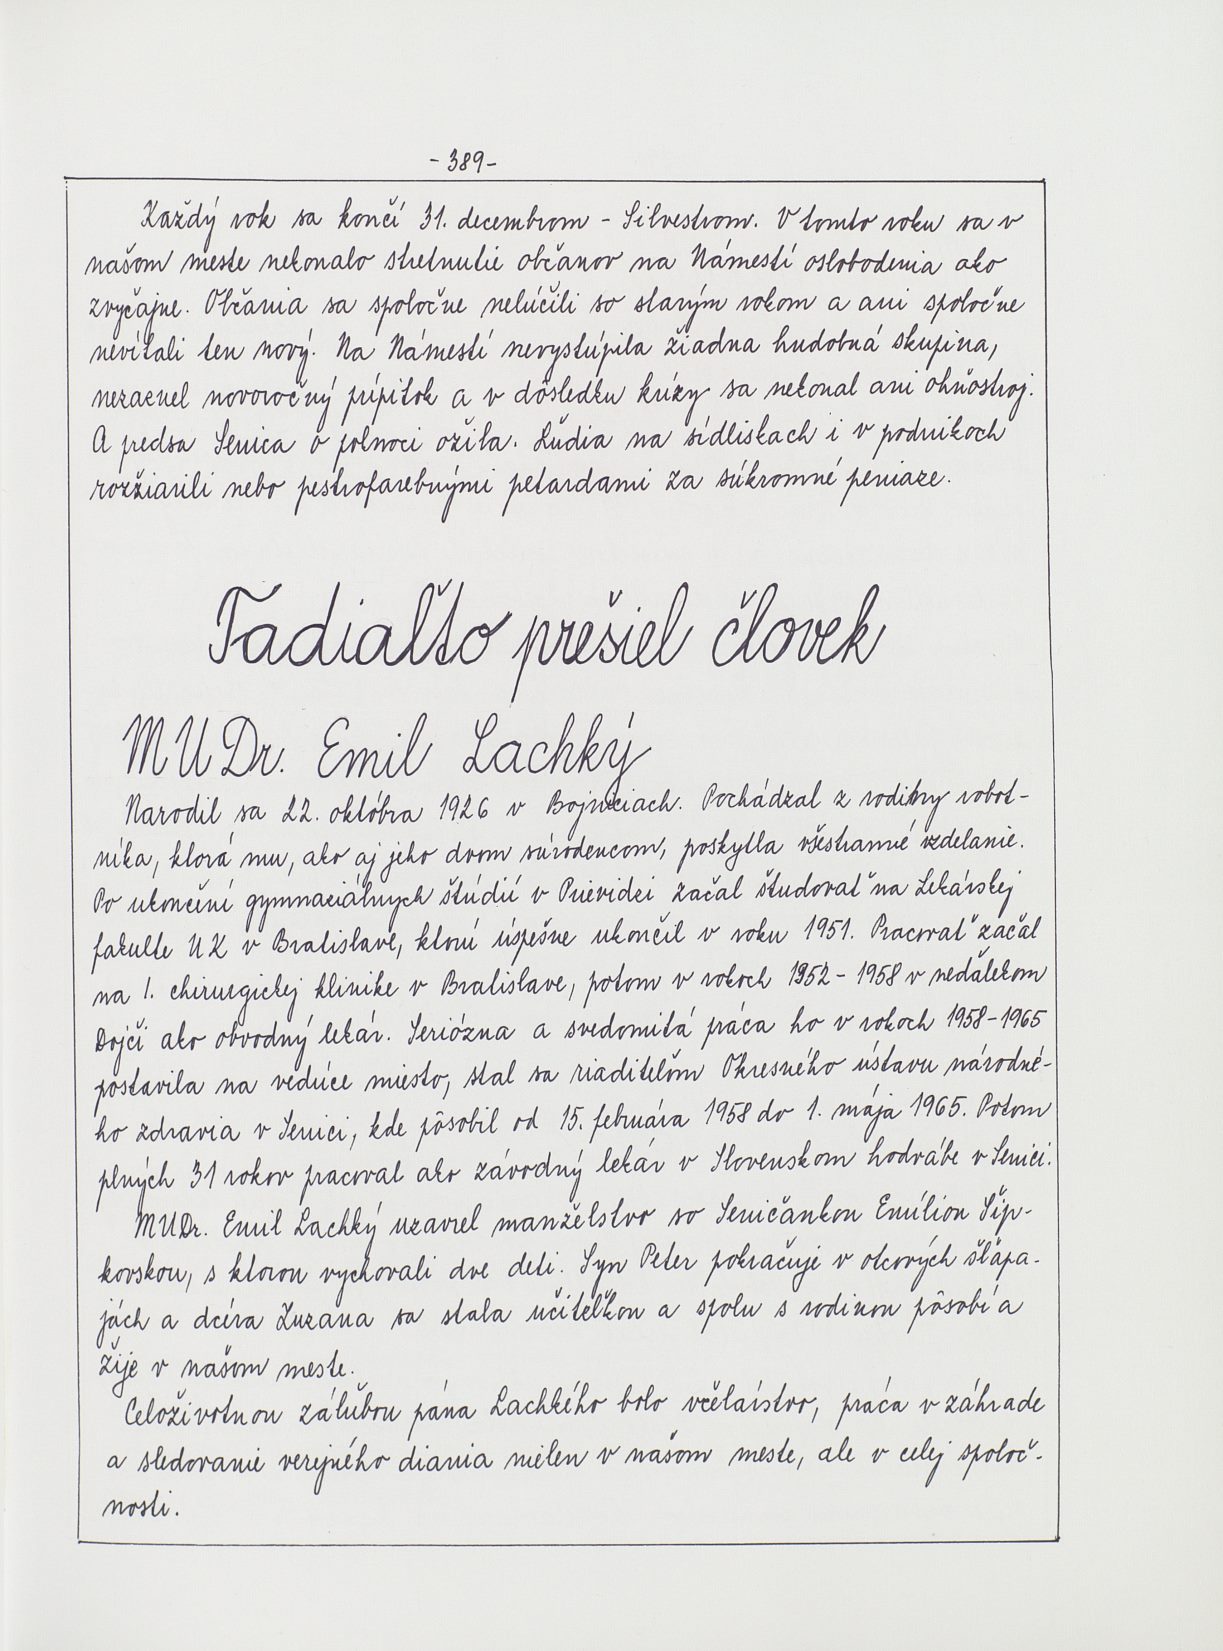 -389-
Každý rok sa končí 31. decembrom - Silvestrom. V tomto roku sa v
našom meste nekonalo stretnutie občanov na Námestí oslobodenia ako
zvyčajne. Občania sa spoločne nelúčili so starým rokom a ani spoločne
nevítali ten nový. Na Námestí nevystúpila žiadna hudobná skupina,
nezaznel novoročný prípitok a v dôsledku krízy sa nekonal ani ohňostroj.
A predsa Senica o polnoci ožila. Ľudia na sídliskach i v podnikoch
rozžiarili nebo pestrofarebnými petardami za súkromné peniaze.
Tadiaľto prešiel človek
MUDr. Emil Lachký
Narodil sa 22. októbra 1926 v Bojniciach. Pochádzal z rodiny robot-
níka, ktorá mu, ako aj jeho dvom súrodencom, poskytla všestranné vzdelanie.
Po ukončení gymnaziálnych štúdií v Prievidzi začal študovať na Lekárskej
fakulte UK v Bratislave, ktorú úspešne ukončil v roku 1951. Pracovať začal
na 1. chirurgickej klinike v Bratislave, potom v rokoch 1952 - 1958 v neďalekom
Dojči ako obvodný lekár. Seriózna a svedomitá práca ho v rokoch 1958-1965
postavila na vedúce miesto, stal sa riaditeľom Okresného ústavu národné-
ho zdravia v Senici, kde pôsobil od 15. februára 1958 do 1. mája 1965. Potom
plných 31 rokov pracoval ako závodný lekár v Slovenskom hodvábe v Senici.
MUDr. Emil Lachký uzavrel manželstvo so Seničankou Emíliou Šíp-
kovskou, s ktorou vychovali dve deti. Syn Peter pokračuje v otcových šľapa-
jách a dcéra Zuzana sa stala učiteľkou a spolu s rodinou pôsobí a
žije v našom meste.
Celoživotnou záľubou pána Lachkého bolo včelárstvo, práca v záhrade
a sledovanie verejného diania nielen v našom meste, ale v celej spoloč-
nosti.